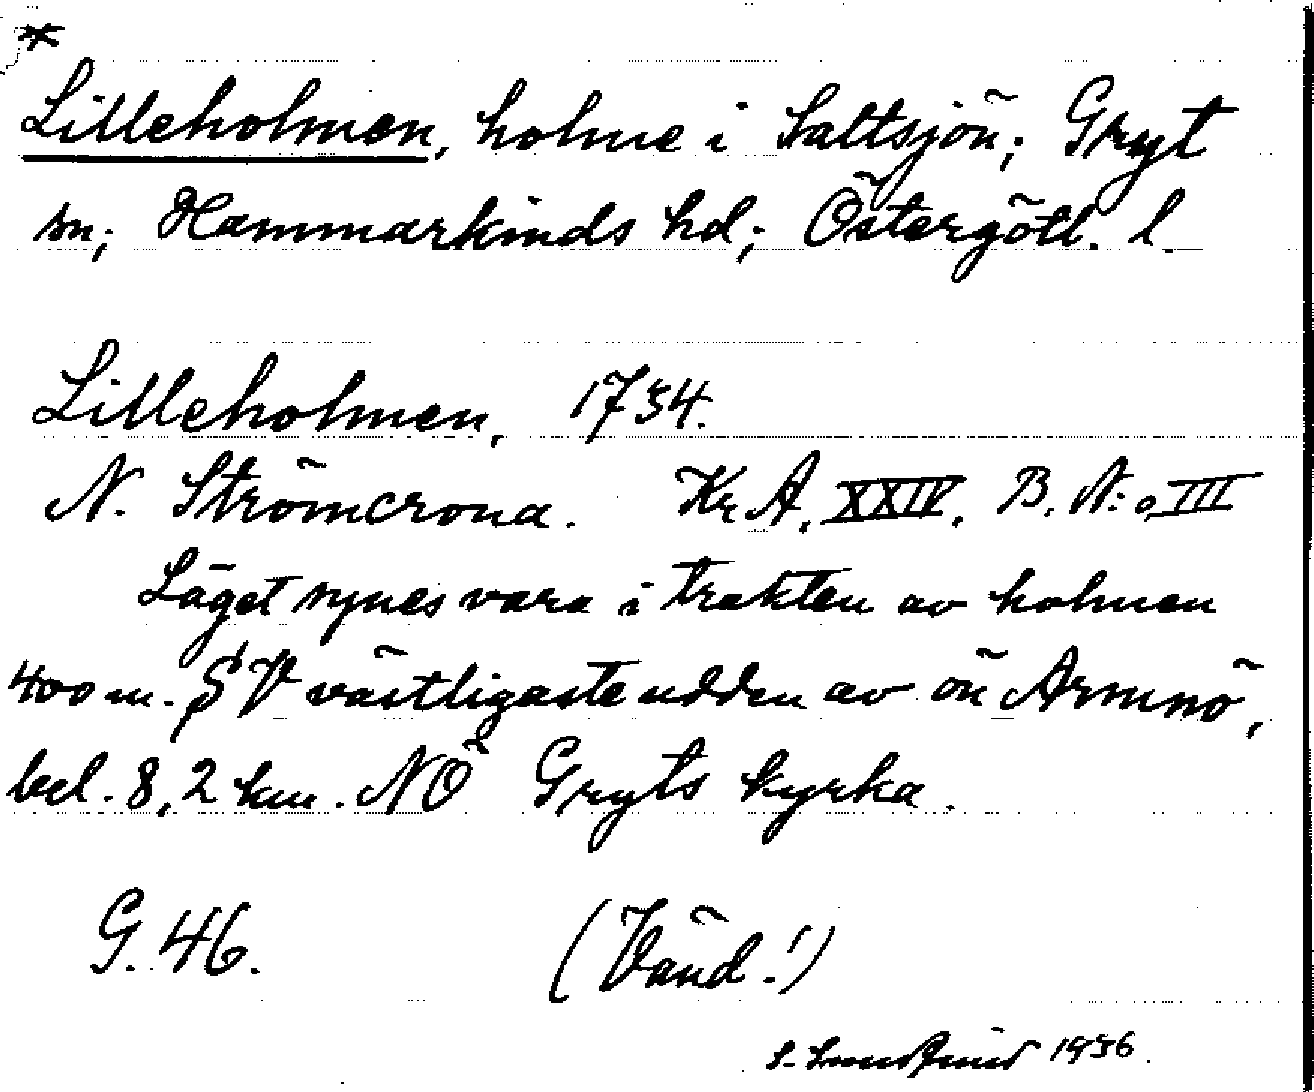 *
Lilleholmen, holme i Saltsjön; Gryt
sn; Hammarkinds hd; Östergötl. l.
Lilleholmen, 1734.
N. Strömcrona. Kr. A. XXIV. B. N:o III
Läget synes vara i trakten av holmen
400 m. S V västligaste udden av ön Armnö,
bel. 8,2 km. NÖ Gryts kyrka.
G. 46. (Vänd!)
S. 1936.